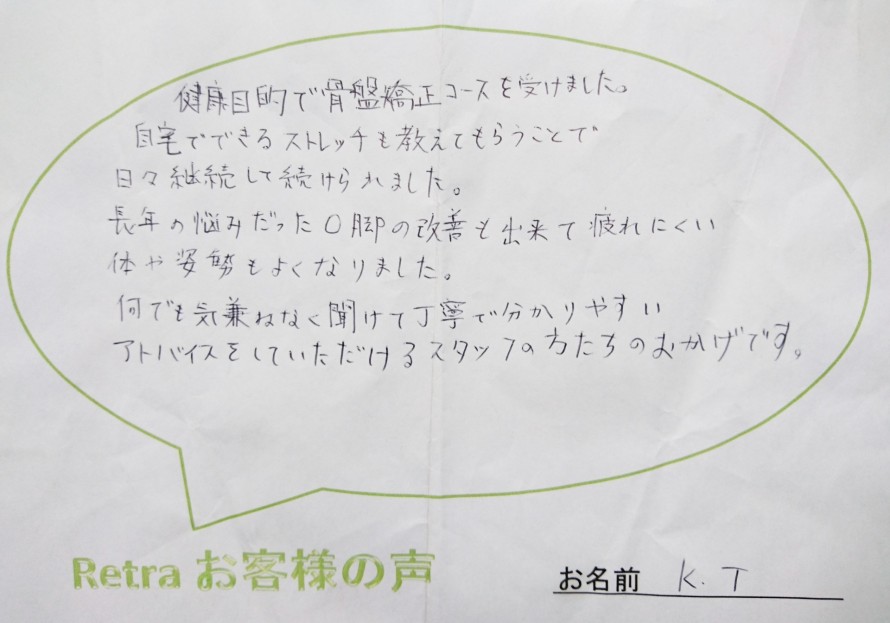 健康目的で骨盤矯正コースを受けました。
自宅でできるストレッチも教えてもらうことで
日々継続して続けられました。
長年の悩みだったO脚の改善も出来て疲れにくい
体や姿勢もよくなりました。
何でも気兼ねなく聞けて丁寧で分かりやすい
アトバイスをしていただけるスタッフの方たちのおかげです。
Retra お客様の声
お名前 K.T